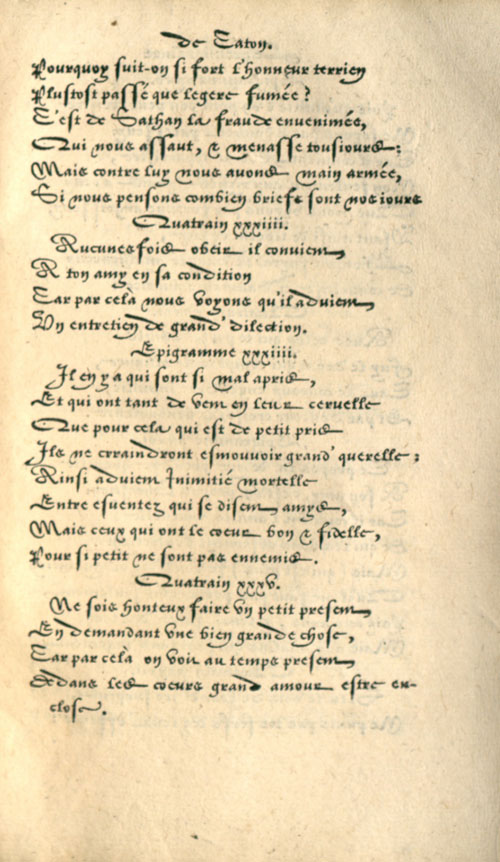 de Caton.
Pourquoy suit-on si fort l'honneur terrien
Plustost passé que legere fumée?
C'est de Sathan la fraude envenimée,
Qui nous assaut, & menasse tousiours:
Mais contre luy nous avons main armée,
Si nous pensons combien briefs sont nos iours
Quatrain xxxiiii.
Aucunesfois obeir il convient
A ton amy en sa condition
Car par celà nous voyons qu'il advient
Un entretien de grand' dilection.
Epigramme xxxiiii.
Il en y a qui sont si mal apris,
Et qui ont tant de vent en leur cervelle
Que pour cela qui est de petit pris
Ils ne craindront esmouvoir grand' querelle:
Ainsi advient Inimitié mortelle
Entre esventez qui se disent amys,
Mais ceux qui ont le coeur bon & fidelle,
Pour si petit ne sont pas ennemis.
Quatrain xxxv.
Ne sois honteux faire vn petit present
En demandant vne bien grande chose,
Car par celà on voit au temps present
Dedans les coeurs grand amour estre en-
close.